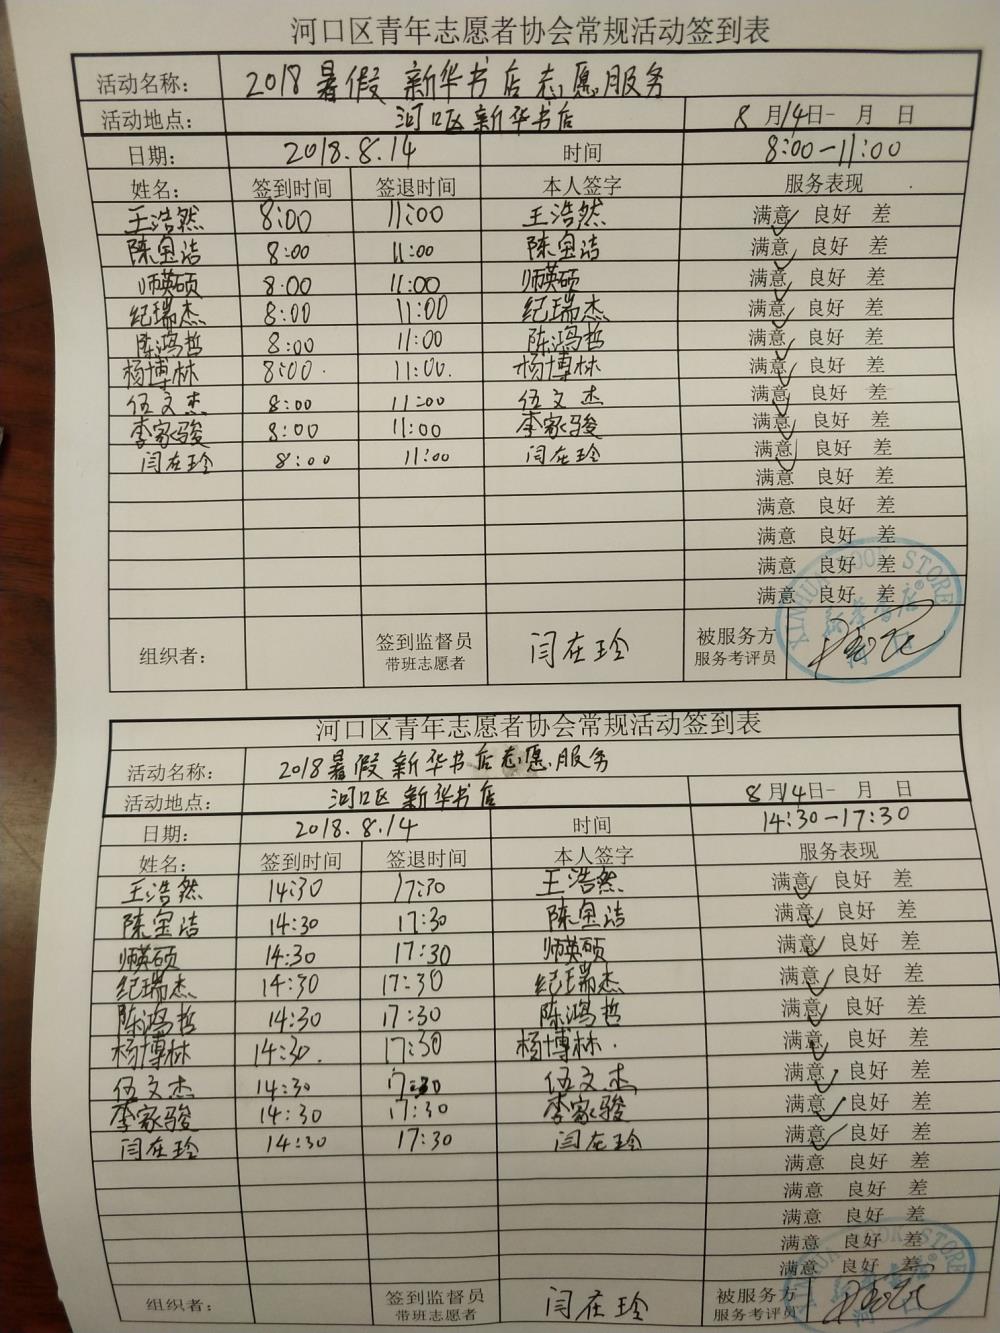 河口区青年志愿者协会常规活动签到表
活动名称: 2018暑假 新华书店志愿服务
活动地点: 河口区新华书店 8月14日- 月 日
日期: 2018.8.14 时间 8:00-11:00
姓名: 签到时间 签退时间 本人签字 服务表现
王浩然 8:00 11:00 王浩然 满意✓ 良好 差
陈宝洁 8:00 11:00 陈宝洁 满意✓ 良好 差
师英硕 8:00 11:00 师英硕 满意✓ 良好 差
纪瑞杰 8:00 11:00 纪瑞杰 满意✓ 良好 差
陈鸿哲 8:00 11:00 陈鸿哲 满意✓ 良好 差
杨博林 8:00. 11:00. 杨博林 满意✓ 良好 差
伍文杰 8:00 11:00 伍文杰 满意✓ 良好 差
李家骏 8:00 11:00 李家骏 满意✓ 良好 差
闫在玲 8:00 11:00 闫在玲 满意✓ 良好 差
满意 良好 差
满意 良好 差
满意 良好 差
满意 良好 差
满意 良好 差
XINHUA BOOK STORE
新华书店®
组织者: 签到监督员 闫在玲 被服务方
带班志愿者 服务考评员
河口区青年志愿者协会常规活动签到表
活动名称: 2018暑假 新华书店志愿服务
活动地点: 河口区 新华书店 8月14日- 月 日
日期: 2018.8.14 时间 14:30-17:30
姓名: 签到时间 签退时间 本人签字 服务表现
王浩然 14:30 17:30 王浩然 满意✓ 良好 差
陈宝洁 14:30 17:30 陈宝洁 满意✓ 良好 差
师英硕 14:30 17:30 师英硕 满意✓ 良好 差
纪瑞杰 14:30 17:30 纪瑞杰 满意✓ 良好 差
陈鸿哲 14:30 17:30 陈鸿哲 满意✓ 良好 差
杨博林 14:30. 17:30 杨博林. 满意✓ 良好 差
伍文杰 14:30 17:30 伍文杰 满意✓ 良好 差
李家骏 14:30 17:30 李家骏 满意✓ 良好 差
闫在玲 14:30 17:30 闫在玲 满意✓ 良好 差
满意 良好 差
满意 良好 差
满意 良好 差
满意 良好 差
满意 良好 差
XINHUA BOOK STORE
新华书店®
组织者: 签到监督员 闫在玲 被服务方
带班志愿者 服务考评员